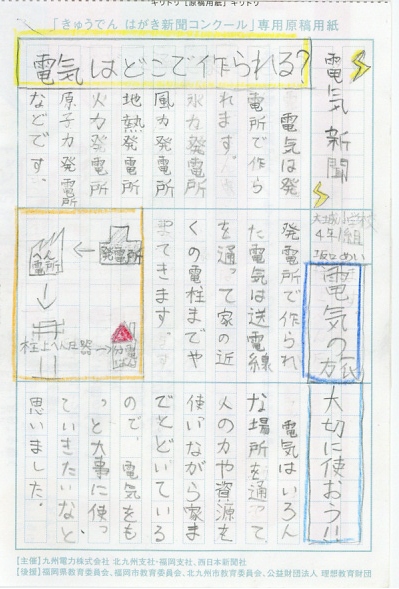 キリトリ【原稿用紙】キリトリ
「きゅうでん はがき新聞コンクール」専用原稿用紙
電気新聞
大城小学校
4年1組
坂口めい
電気はどこで作られる?
電気は発
電所で作ら
れます。
水力発電所
風力発電所
地熱発電所
火力発電所
原子力発電所
などです。
電気の旅
発電所で作られ
た電気は送電線
を通って家の近
くの電柱までや
ってきます。
発電所
へん電所
柱上へんた器
分電ばん
大切に使おう!!
電気はいろん
な場所を通って
人の力や資源を
使いながら家ま
でとどいている
ので、電気をも
っと大事に使っ
ていきたいなと、
思いました。
【主催】九州電力株式会社 北九州支社・福岡支社、西日本新聞社
【後援】福岡県教育委員会、福岡市教育委員会、北九州市教育委員会、公益財団法人 理想教育財団